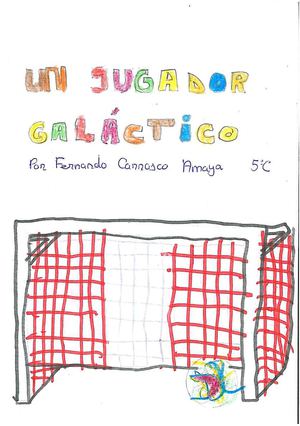 UN JUGADOR
GALÁCTICO
Por Fernando Carrasco Amaya 5ºC